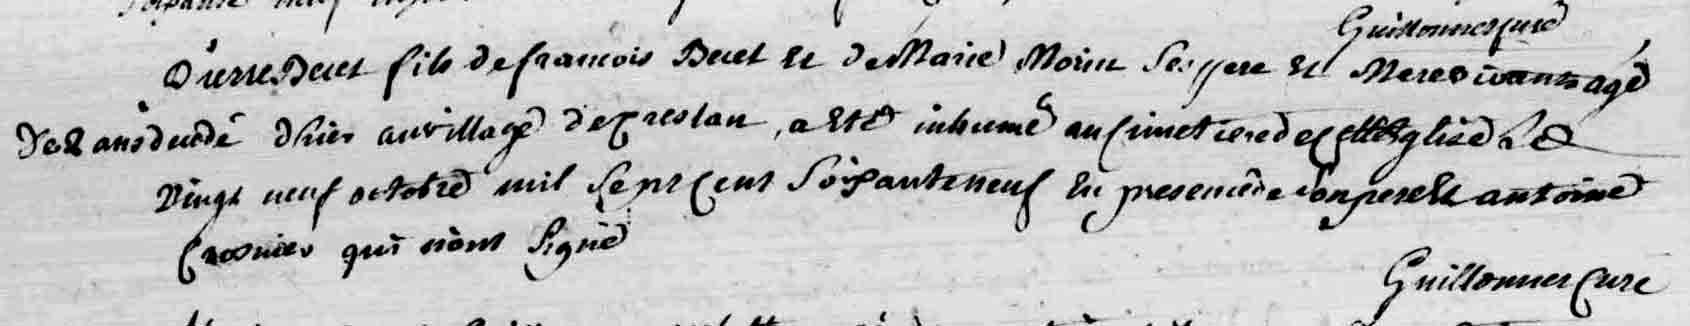 Guillonner curé
Pierre Decet fils de francois Decet et de Marie Morin ses pere et Mere vivants agé
de 2 ans decedé d'hier au village de preslan, a eté inhumé au cimetiere de cette Eglise Le
vingt neuf octobre mil sept cent soixante neuf en presence de son pere et antoine
Crosnier qui n'ont signé
Guillonner curé